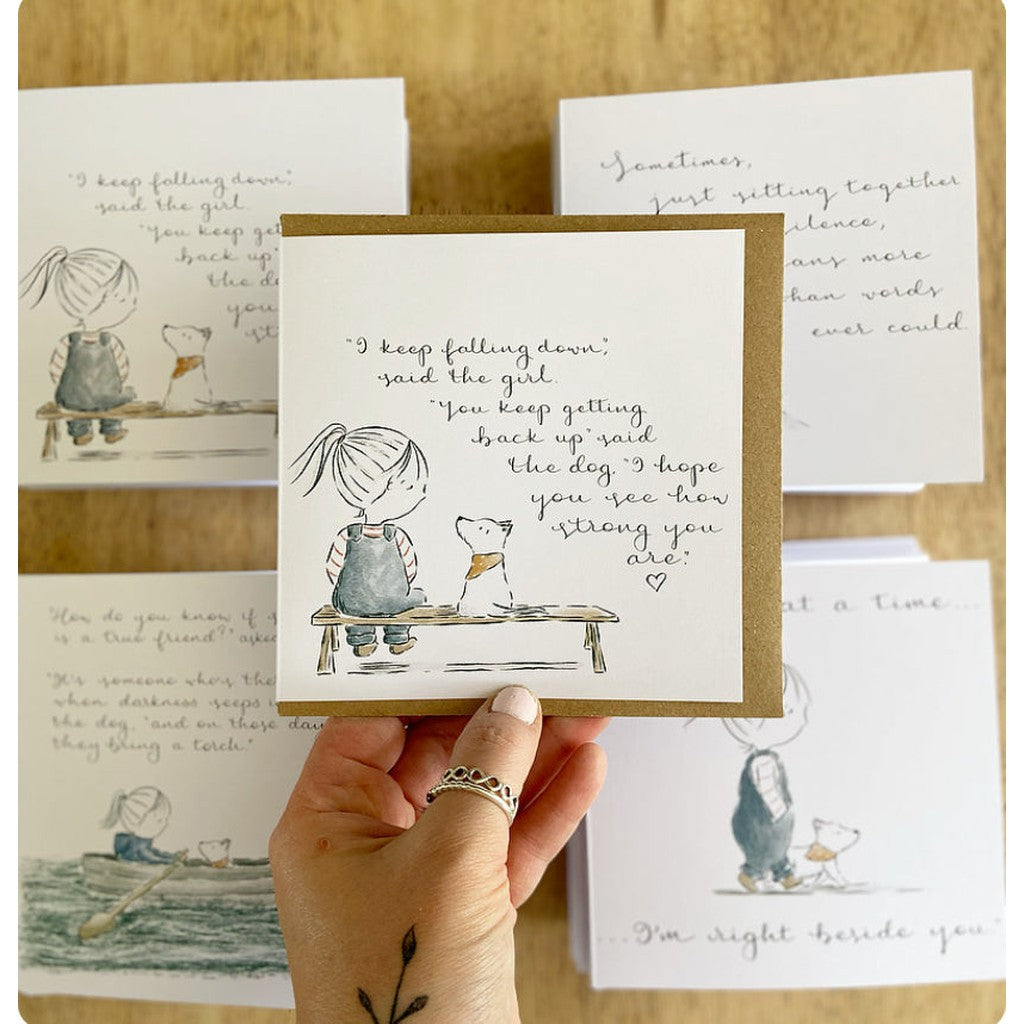 "I keep falling down",
said the girl.
"You keep get
back up"
the do
you
st
Sometimes,
just sitting together
ilence,
ans more
han words
ever could.
"I keep falling down",
said the girl.
"You keep getting
back up" said
the dog. "I hope
you see how
strong you
are."
"How do you know if s
is a true friend?" asked
"It's someone who's the
when darkness seeps i
the dog, "and on those da
they bring a torch."
at a time...
...I'm right beside you."